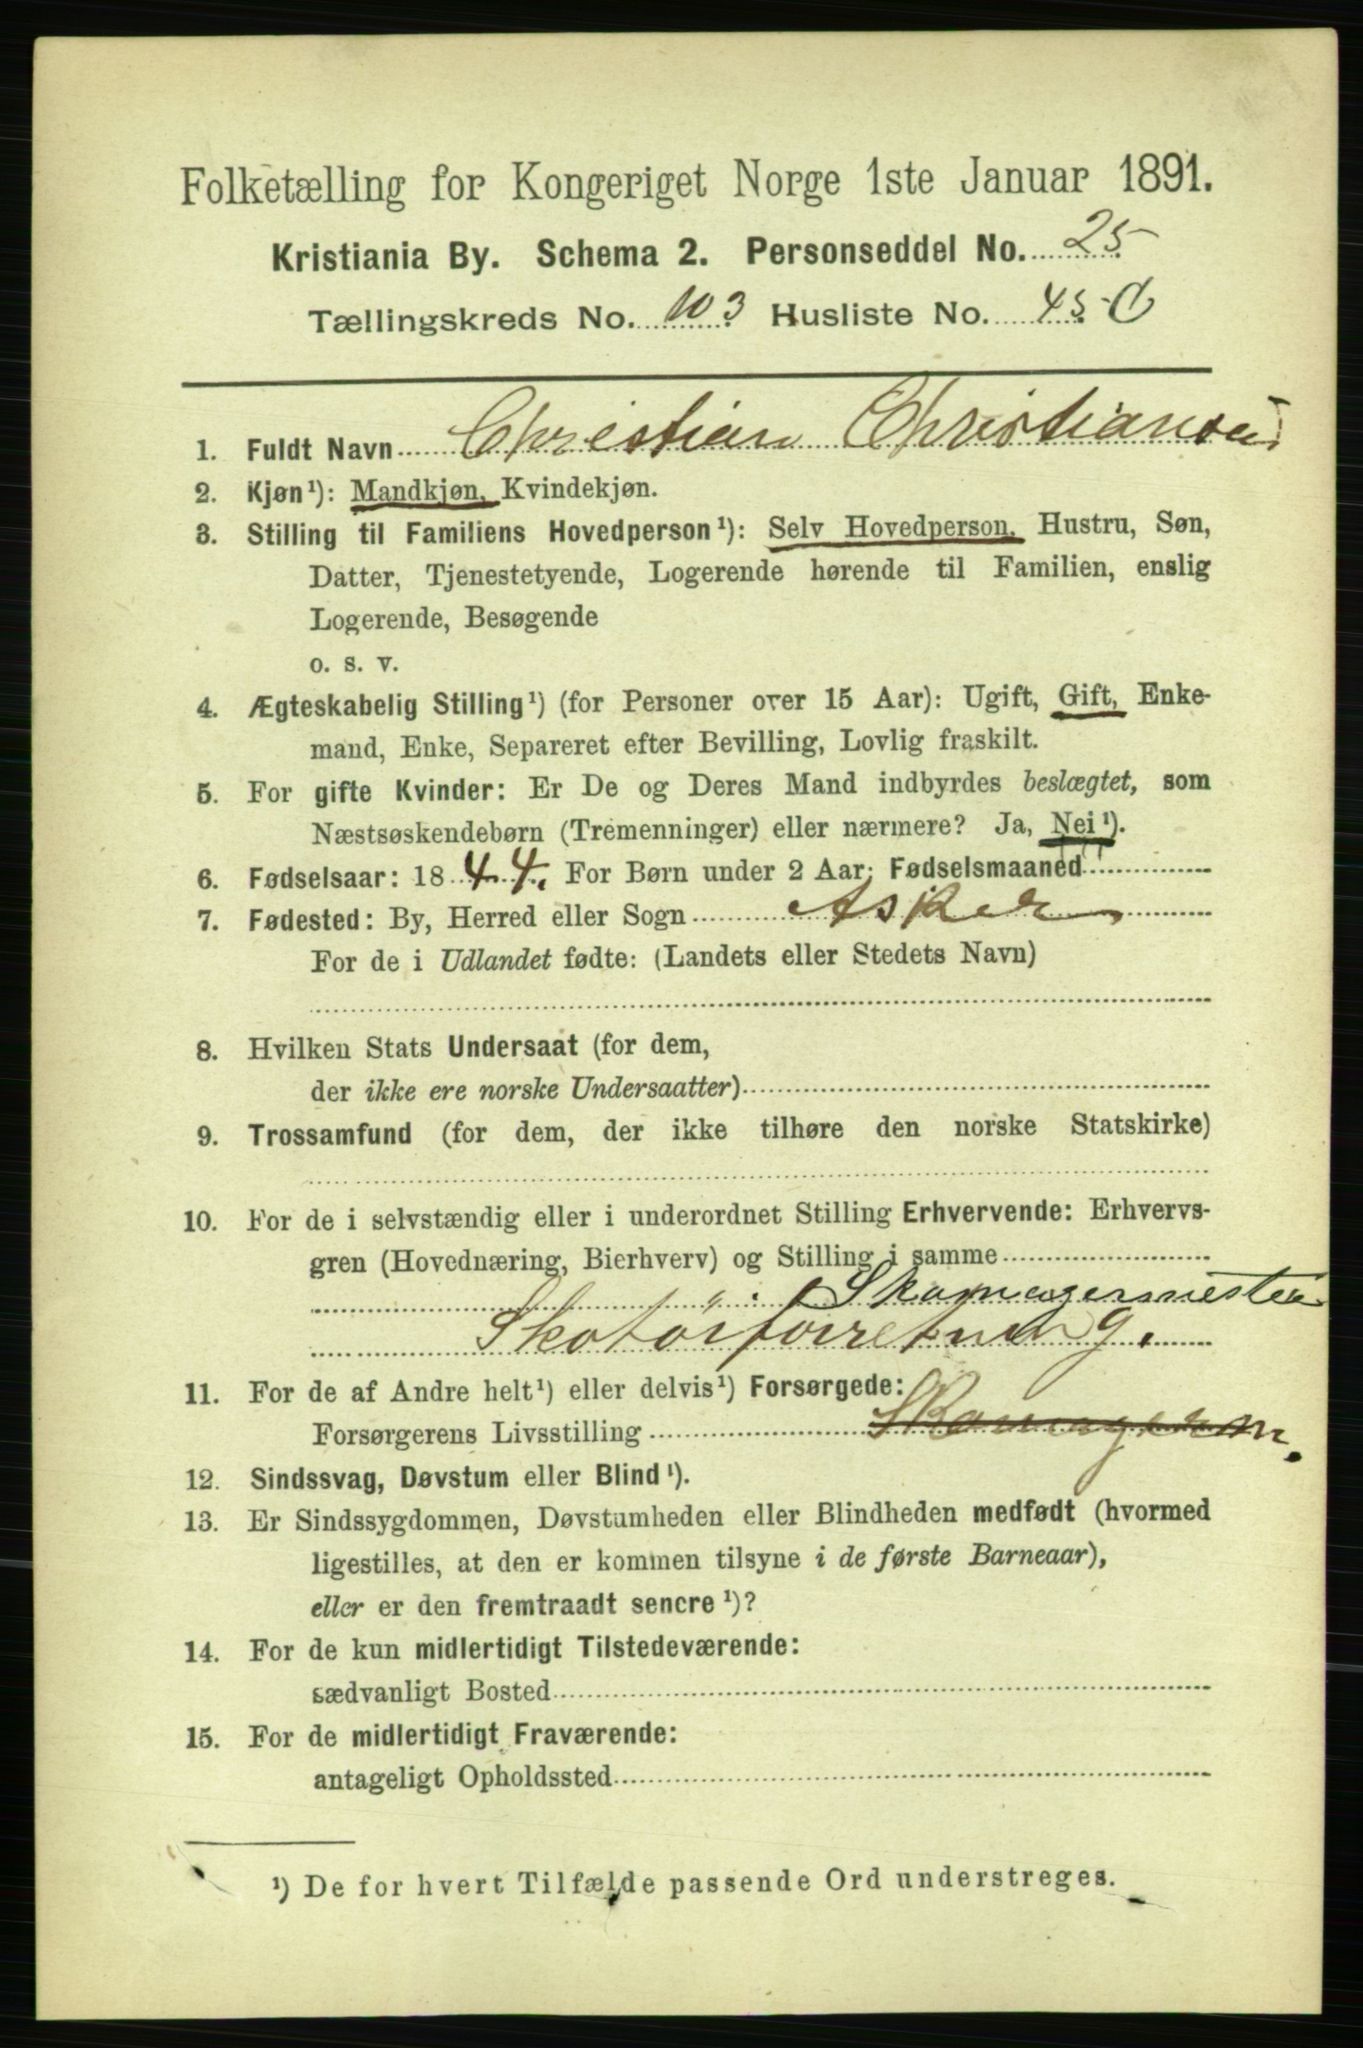 Folketælling for Kongeriget Norge 1ste Januar 1891.
Kristiania By. Schema 2. Personseddel No. 25
Tællingskreds No. 103 Husliste No. 45 C
1. Fuldt Navn Christian Christiansen
2. Kjøn¹): Mandkjøn, Kvindekjøn.
3. Stilling til Familiens Hovedperson¹): Selv Hovedperson, Hustru, Søn,
Datter, Tjenestetyende, Logerende hørende til Familien, enslig
Logerende, Besøgende
o. s. v.
4. Ægteskabelig Stilling¹) (for Personer over 15 Aar): Ugift, Gift, Enke-
mand, Enke, Separeret efter Bevilling, Lovlig fraskilt.
5. For gifte Kvinder: Er De og Deres Mand indbyrdes beslægtet, som
Næstsøskendebørn (Tremenninger) eller nærmere? Ja, Nei¹).
6. Fødselsaar: 1844. For Børn under 2 Aar: Fødselsmaaned
7. Fødested: By, Herred eller Sogn Asker
For de i Udlandet fødte: (Landets eller Stedets Navn)
8. Hvilken Stats Undersaat (for dem,
der ikke ere norske Undersaatter)
9. Trossamfund (for dem, der ikke tilhøre den norske Statskirke)
10. For de i selvstændig eller i underordnet Stilling Erhvervende: Erhvervs-
gren (Hovednæring, Bierhverv) og Stilling i samme
Skomagermester
Skotöiforretning.
11. For de af Andre helt¹) eller delvis¹) Forsørgede:
Forsørgerens Livsstilling Skomagerm.
12. Sindssvag, Døvstum eller Blind¹).
13. Er Sindssygdommen, Døvstumheden eller Blindheden medfødt (hvormed
ligestilles, at den er kommen tilsyne i de første Barneaar),
eller er den fremtraadt senere¹)?
14. For de kun midlertidigt Tilstedeværende:
sædvanligt Bosted
15. For de midlertidigt Fraværende:
antageligt Opholdssted
¹) De for hvert Tilfælde passende Ord understreges.